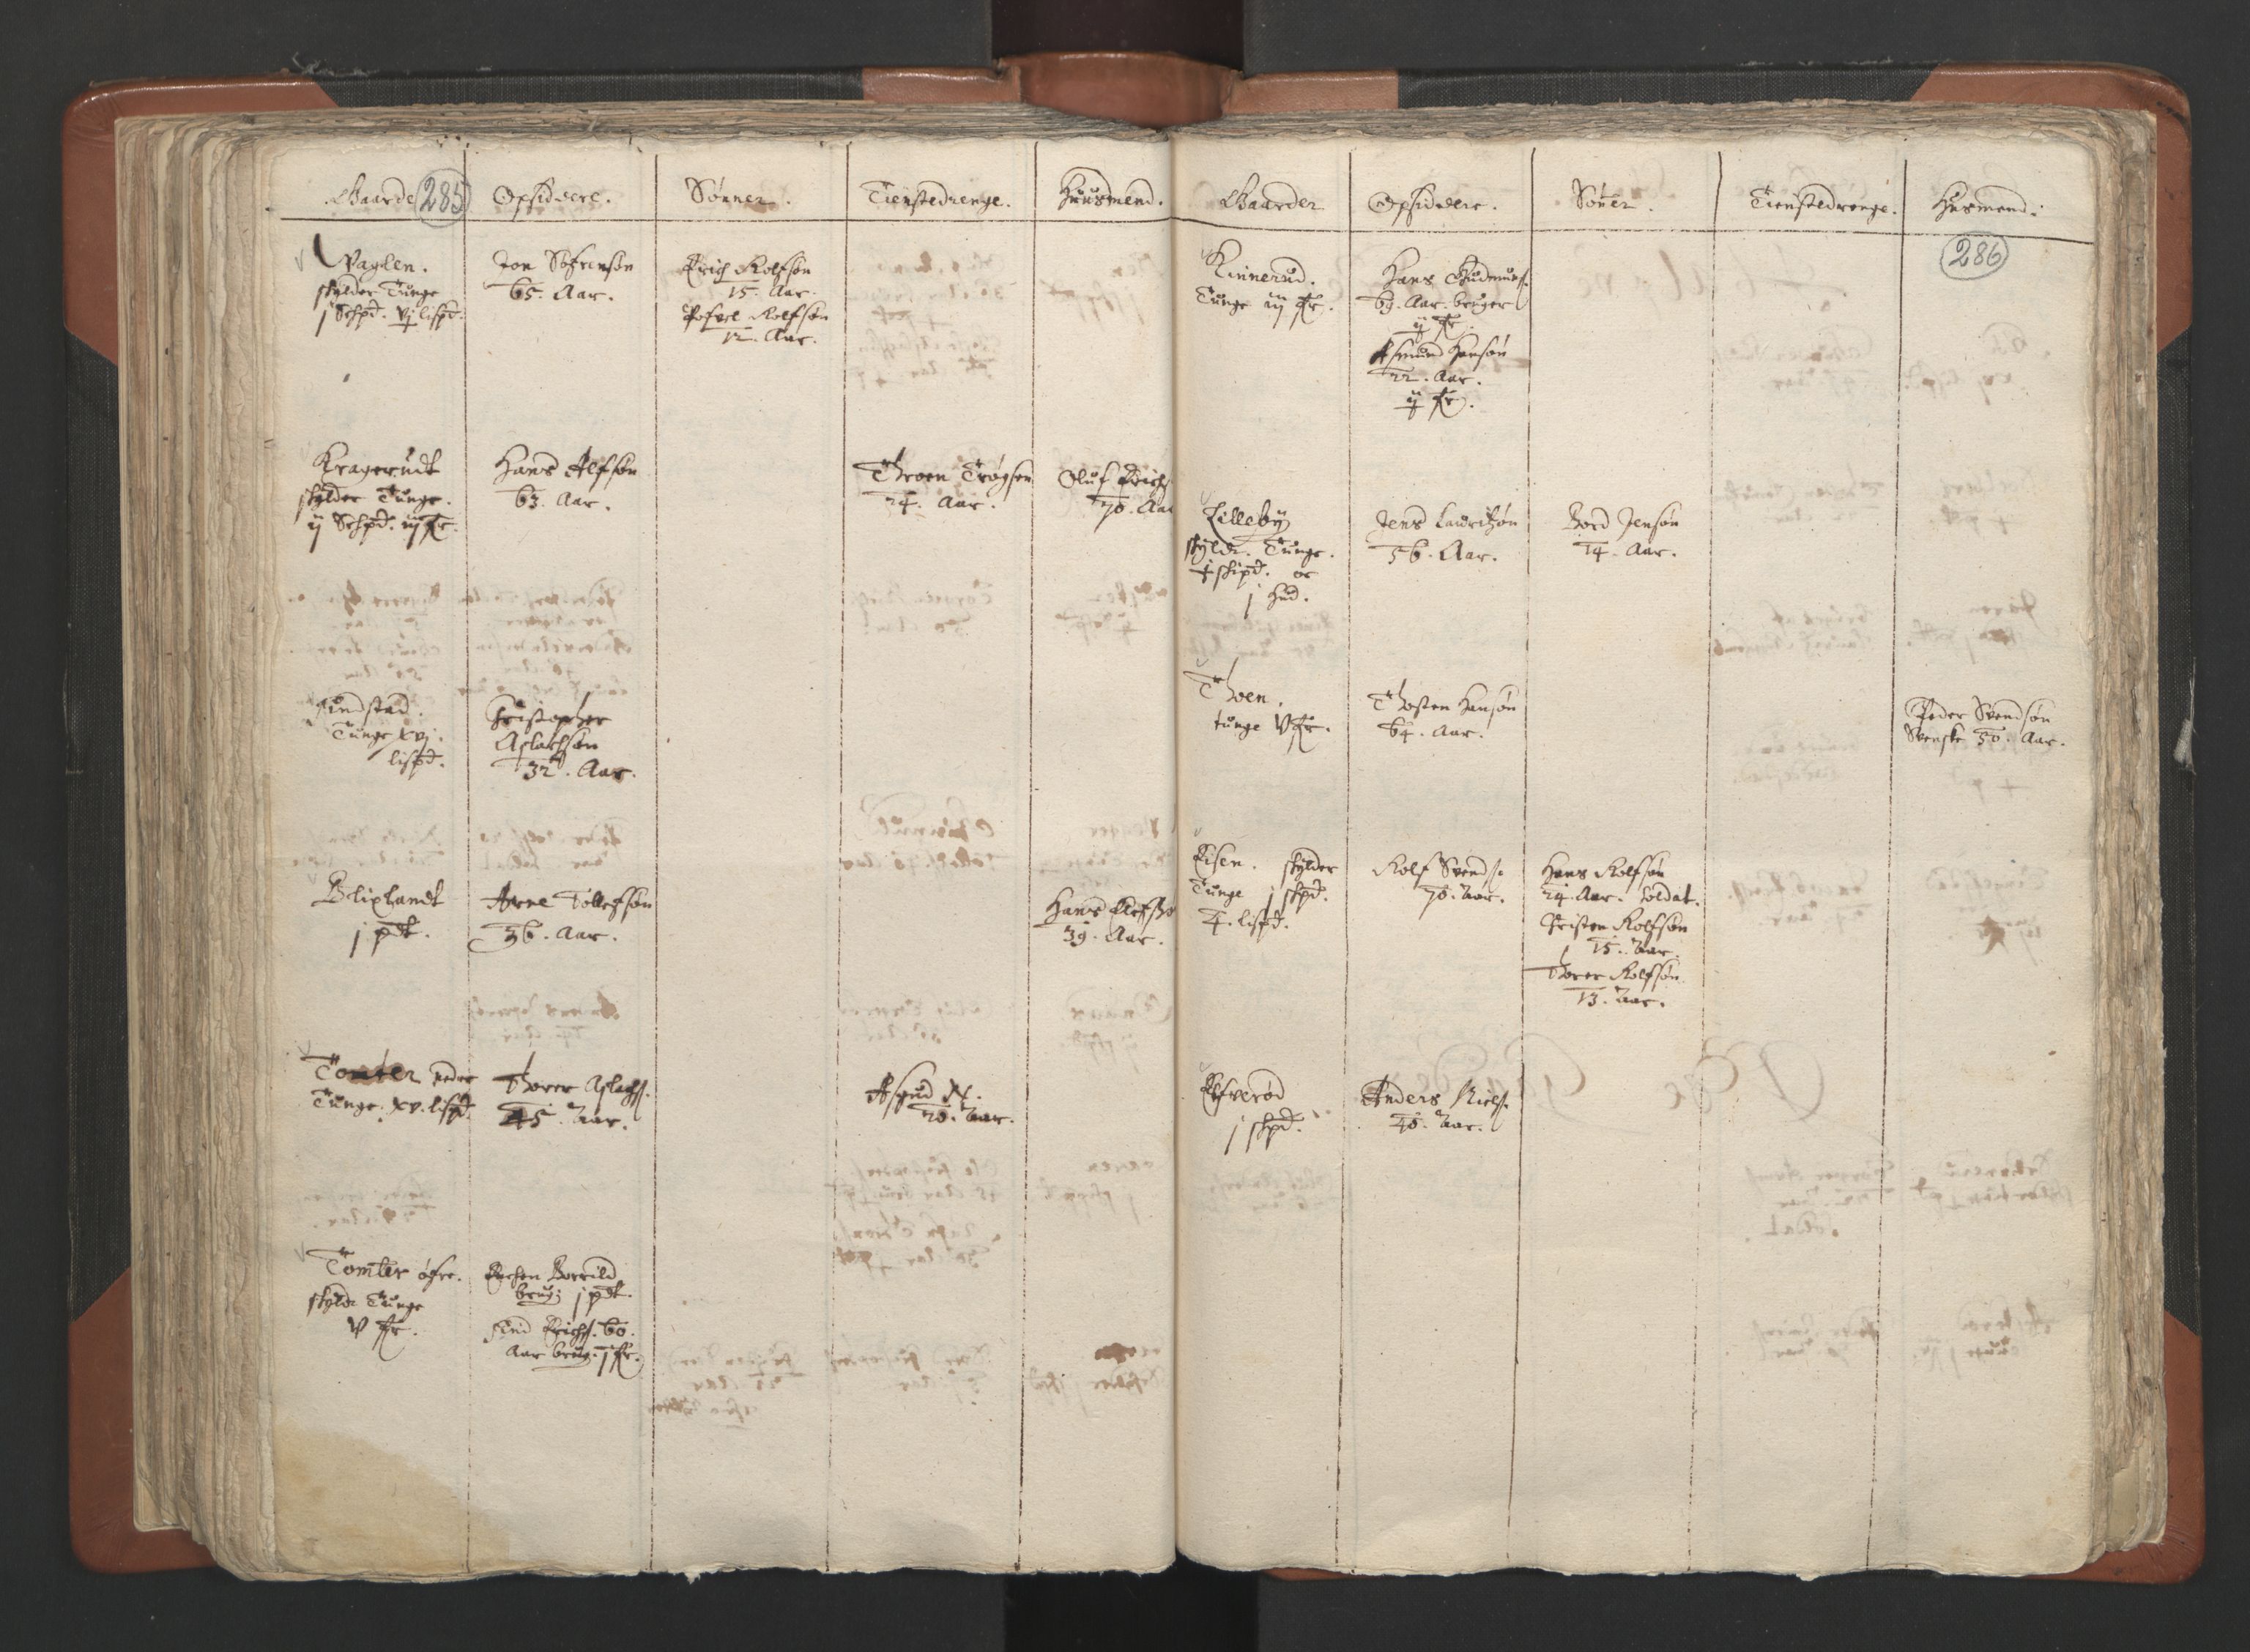 Gaarde 285 Opsiddere. Sønner. Tienstedrenge. Huusmend.
Vaglen.
skylder Tunge
j Schpd. vj lispd.
Jon Sofrensøn
65. Aar.
Erich Rolfsøn
15. Aar.
Pofvel Rolfsøn
12. Aar.
Kragerudt
skylder Tunge.
ij Schpd. iij fr.
Hans Alfsøn
63. Aar.
Throen Trøgsen
24. Aar.
Oluf Erichs
70. Aar
Findstad.
Tunge xvj.
lispd.
Christopher
Aslachsøn
32. Aar.
Blixlandt
j pdt.
Arne Tollefsøn
36. Aar.
Hans
39. Aar.
Tomter neder
Tunge. xv. lispd.
Thorer Aslachs.
45. Aar.
Asmud N.
20. Aar.
Tomter øfre.
skylde Tunge
v fr.
Enchen Borrild
brug: j pdt.
Find Erichs. 60.
Aar brug. j fr.
Gaarder Opsiddere. Søner. Tienstedrenge. Husmend.
286
Kinnerud.
Tunge iij fr.
Hans Gudmuns.
69. Aar. bruger
ij fr.
Asmund Hansøn
22. Aar.
ij fr.
Lilleby
skylde. Tunge.
skipd. oc
j Hud.
Jens Lauridsøn
56. Aar.
Bord Jensøn
14. Aar.
Thoen.
tunge v fr.
Thosten Hansøn
64. Aar.
Peder Svendsøn
Svenske 50. Aar.
Eisen. skylder
Tunge j skpd.
4. lispd.
Rolf Svends.
70. Aar.
Hans Rolfsøn
24. Aar. Soldat.
Christen Rolfsøn
15. Aar.
Thorer Rolfsøn
13. Aar.
Elfverød
j skpd.
Anders Niels.
40. Aar.